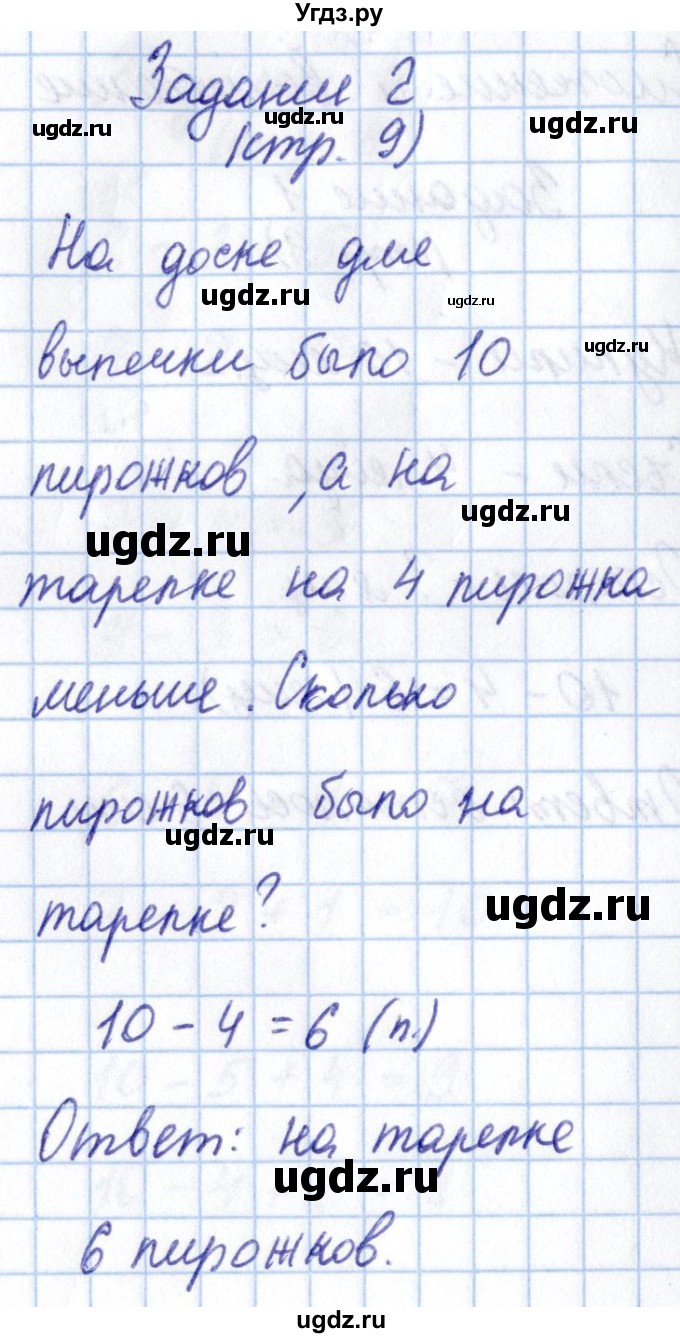 Угдз.ру
Задание 2
(стр. 9)
ugdz.ru ugdz.ru ugdz.ru
На доске для
ugdz.ru ugdz.ru
выпечки было 10
ugdz.ru
пирожков, а на
ugdz.ru ugdz.ru
тарелке на 4 пирожка
меньше. Сколько
пирожков было на
ugdz.ru
тарелке?
ugdz.ru
10 - 4 = 6 (п.)
Ответ: на тарелке
ugdz.ru
6 пирожков.
ugdz.ru